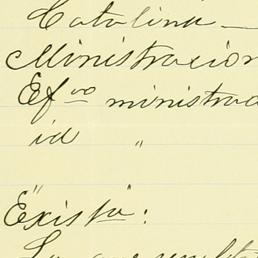 Catalina —
Ministracion
Ef.vo ministrad
id "
"Existta":